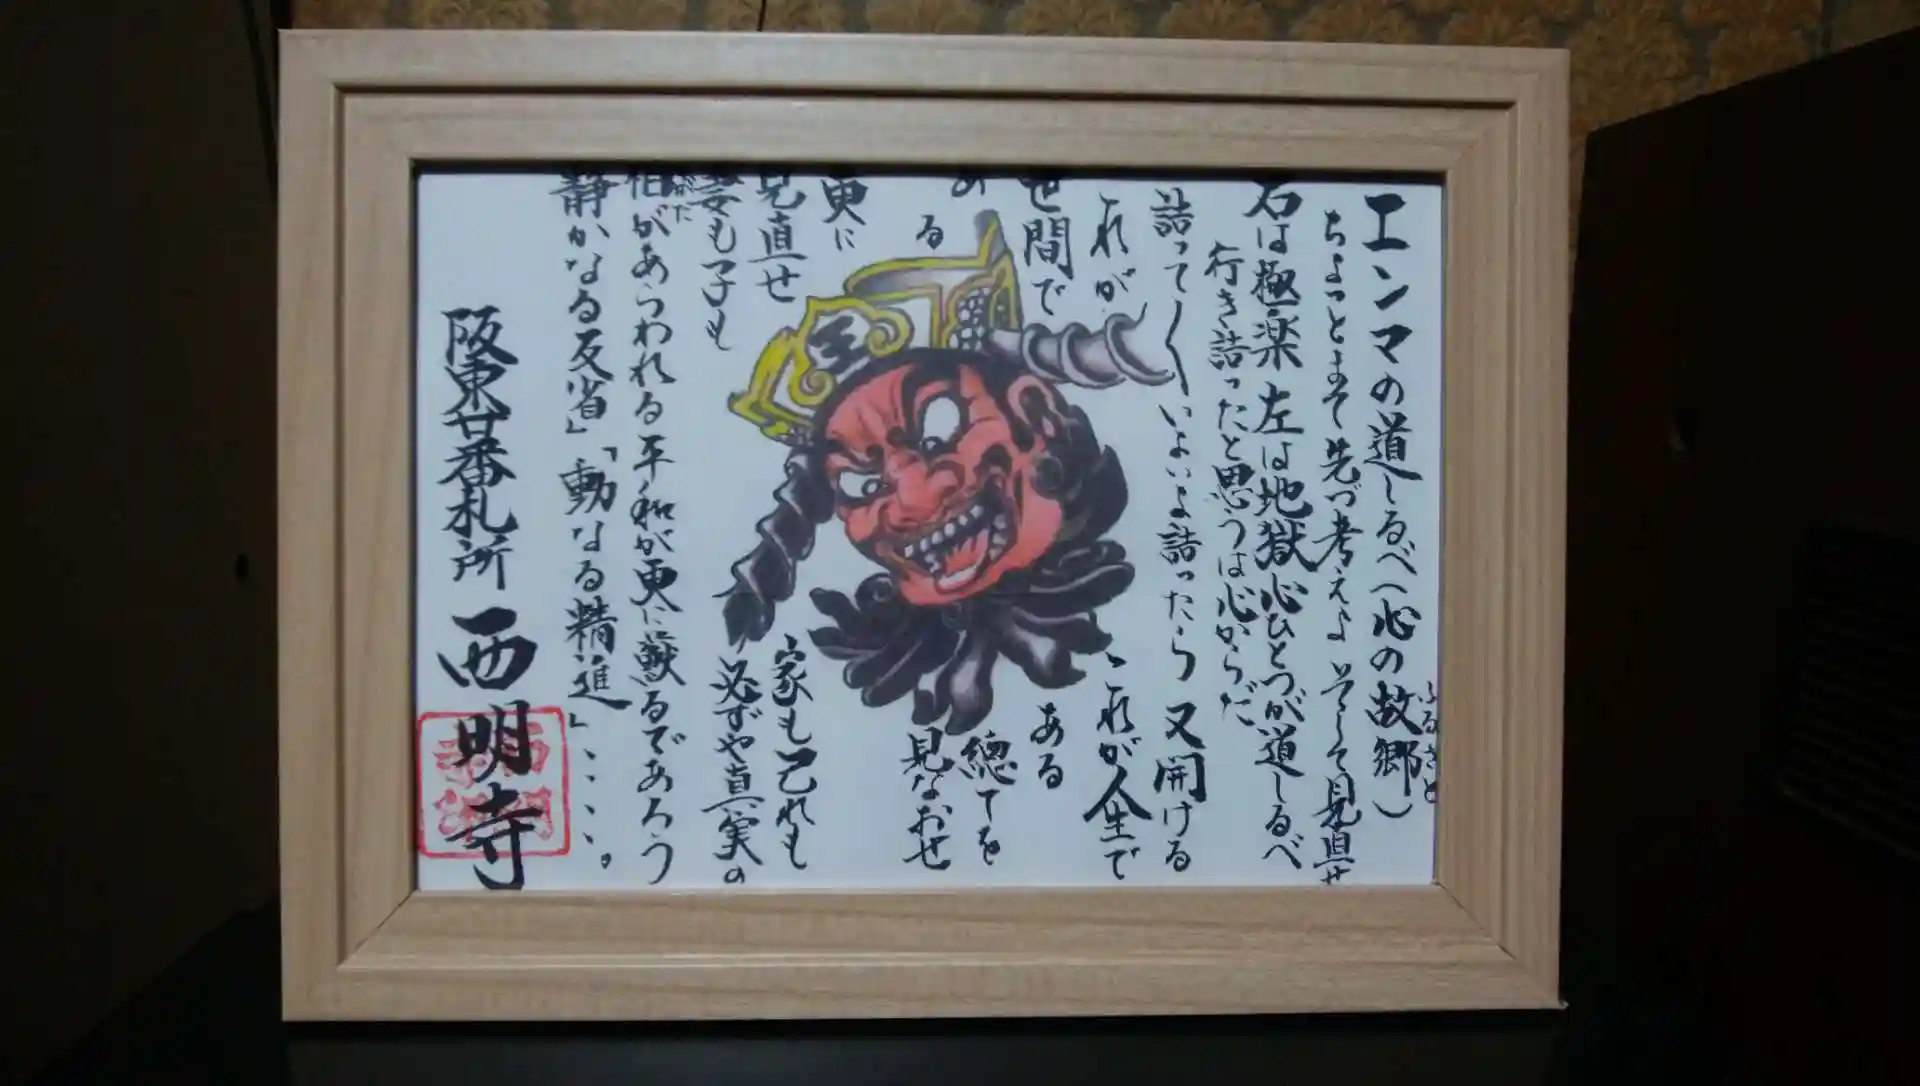 エンマの道しるべ(心の故郷)
ふるさと
ちょっとまて先づ考えよ そして見直せ
右は極楽 左は地獄心ひとつが道しるべ
行き詰ったと思うは心からだ
詰って〱いよいよ詰ったら 又開ける
これが
これが人生で
世間で
ある
ある
總てを
見なおせ
更に
見直せ
家も己れも
妻も子も
必ずや真実の
相があらわれる平和が更に蘇るであろう
静かなる反省」「動なる精進」、、、、。
阪東廿番札所 西明寺
王